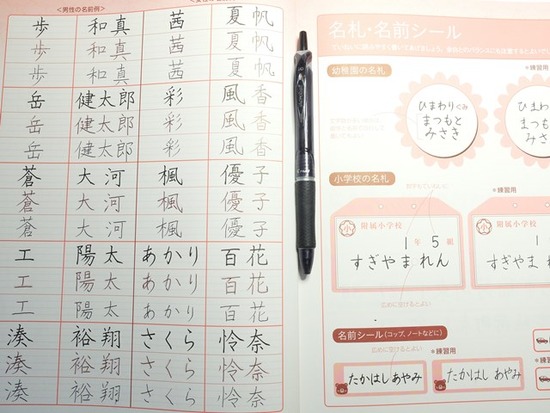 <男性の名前例>
歩 和真 茜 夏帆
歩 和真 茜 夏帆
歩 和真 茜 夏帆
岳 健太郎 彩 風香
岳 健太郎 彩 風香
岳 健太郎 彩 風香
蒼 大河 楓 優子
蒼 大河 楓 優子
蒼 大河 楓 優子
工 陽太 あかり 百花
工 陽太 あかり 百花
工 陽太 あかり 百花
湊 裕翔 さくら 怜奈
湊 裕翔 さくら 怜奈
湊 裕翔 さくら 怜奈
名札・名前シール
幼稚園の名札
*練習用
ひまわりぐみ
まつもと
みさき
ひま
まつも
みさ
小学校の名札
*練習用
附属小学校
1年5組
すぎやまれん
附属小学校
1年
すぎやま れ
広めに空けるとよい
名前シール(コップ、ノートなどに)
広めに空けるとよい
*練習用
たかはし あやみ
たかはし あやみ